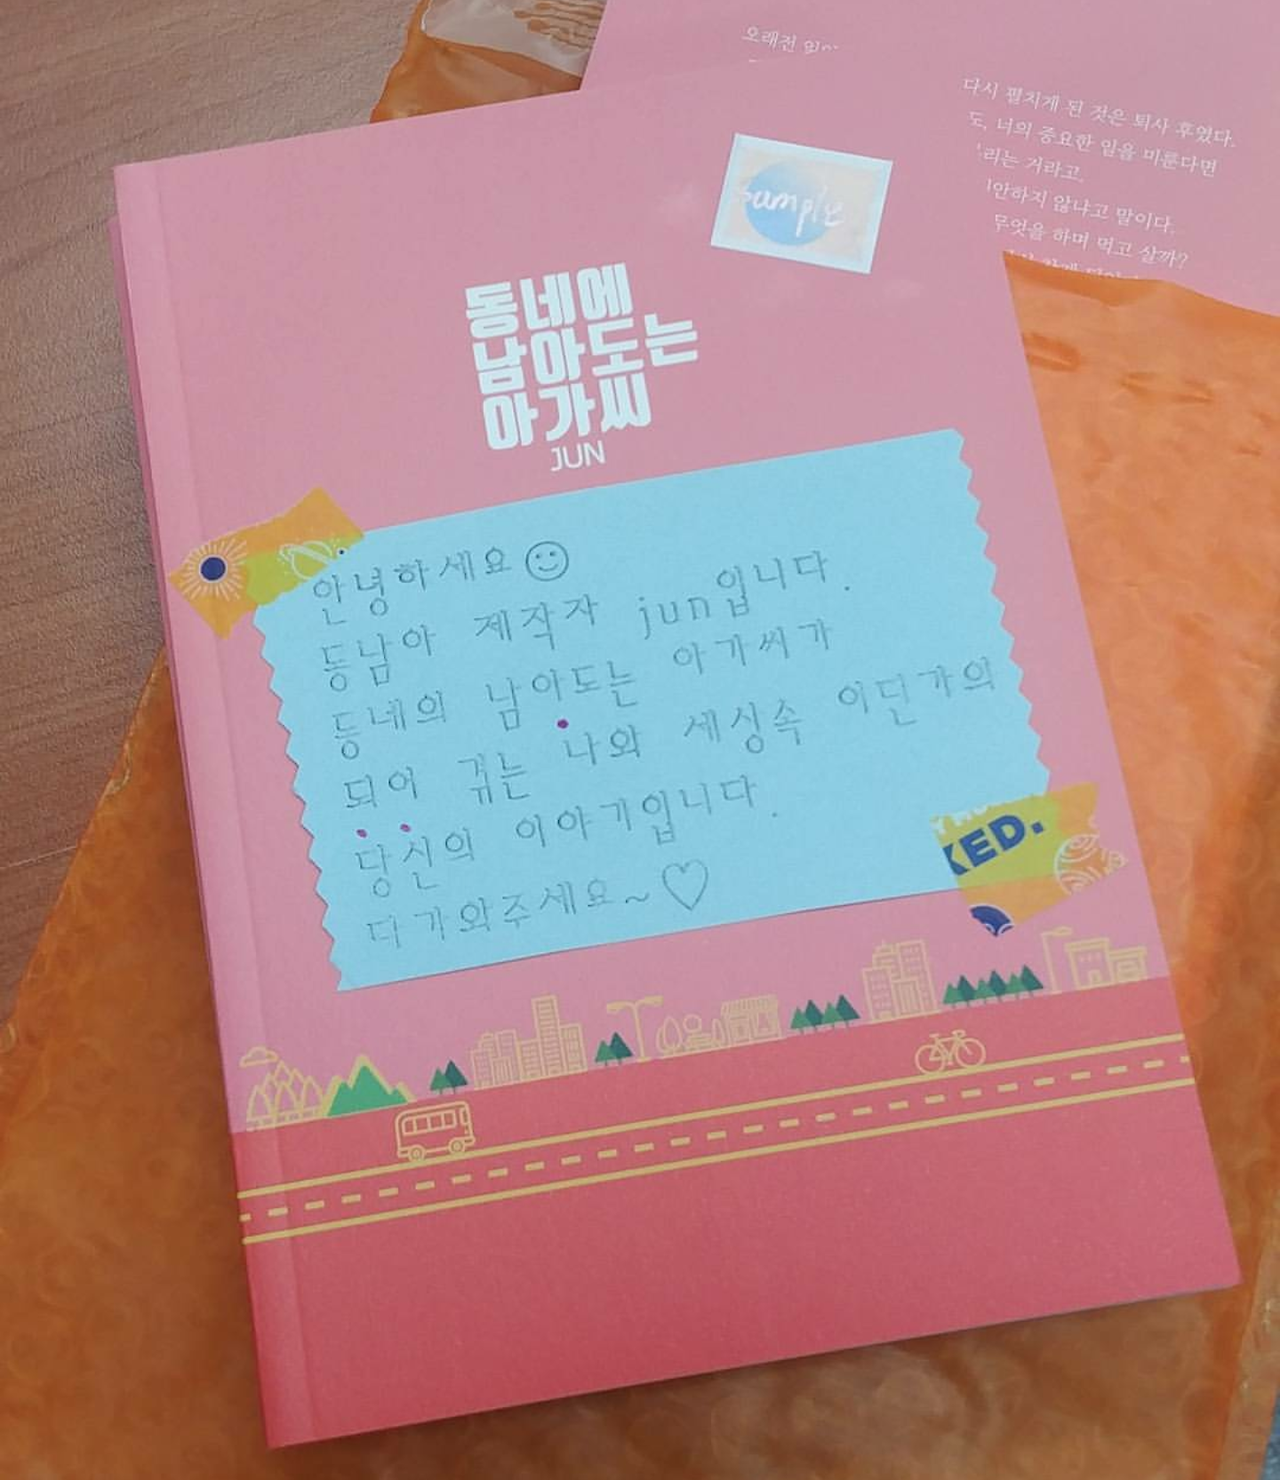 오래전 일이
다시 펼치게 된 것은 퇴사 후였다.
도, 너의 중요한 일을 미룬다면
리는 거라고.
안하지 않냐고 말이다.
무엇을 하며 먹고 살까?
sample
동네에
남아도는
아가씨
JUN
안녕하세요
동남아 제작자 jun입니다.
동네의 남아도는 아가씨가
되어 겪는 나와 세상속 어딘가의
당신의 이야기입니다.
다가와주세요~♡
KED.